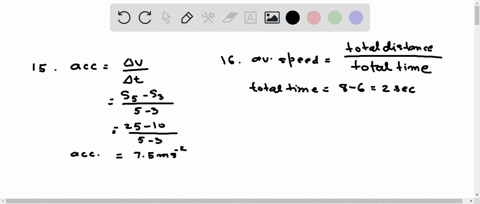 15. acc = ΔV / Δt
= S5 - S3 / 5-3
= 25-10 / 5-3
acc. = 7.5 ms⁻²
16. av. speed = total distance / total time
total time = 8-6 = 2 sec